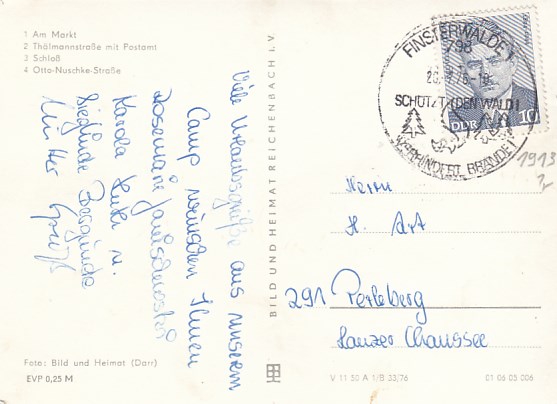 1 Am Markt
2 Thälmannstraße mit Postamt
3 Schloß
4 Otto-Nuschke-Straße
Viele Urlaubsgrüße aus unserem
Camp wünschen Ihnen
Rosemarie
Karola u.
Sieglinde
Foto: Bild und Heimat (Darr)
EVP 0,25 M
BILD UND HEIMAT REICHENBACH I. V.
FINSTERWALDE 1
798
SCHÜTZT DEN WALD!
VERHINDERT BRÄNDE!
DDR 10
1913
Herrn
H. Art
291 Perleberg
Lanzer Chaussee
V 11 50 A 1/B 33/76
01 06 05 006